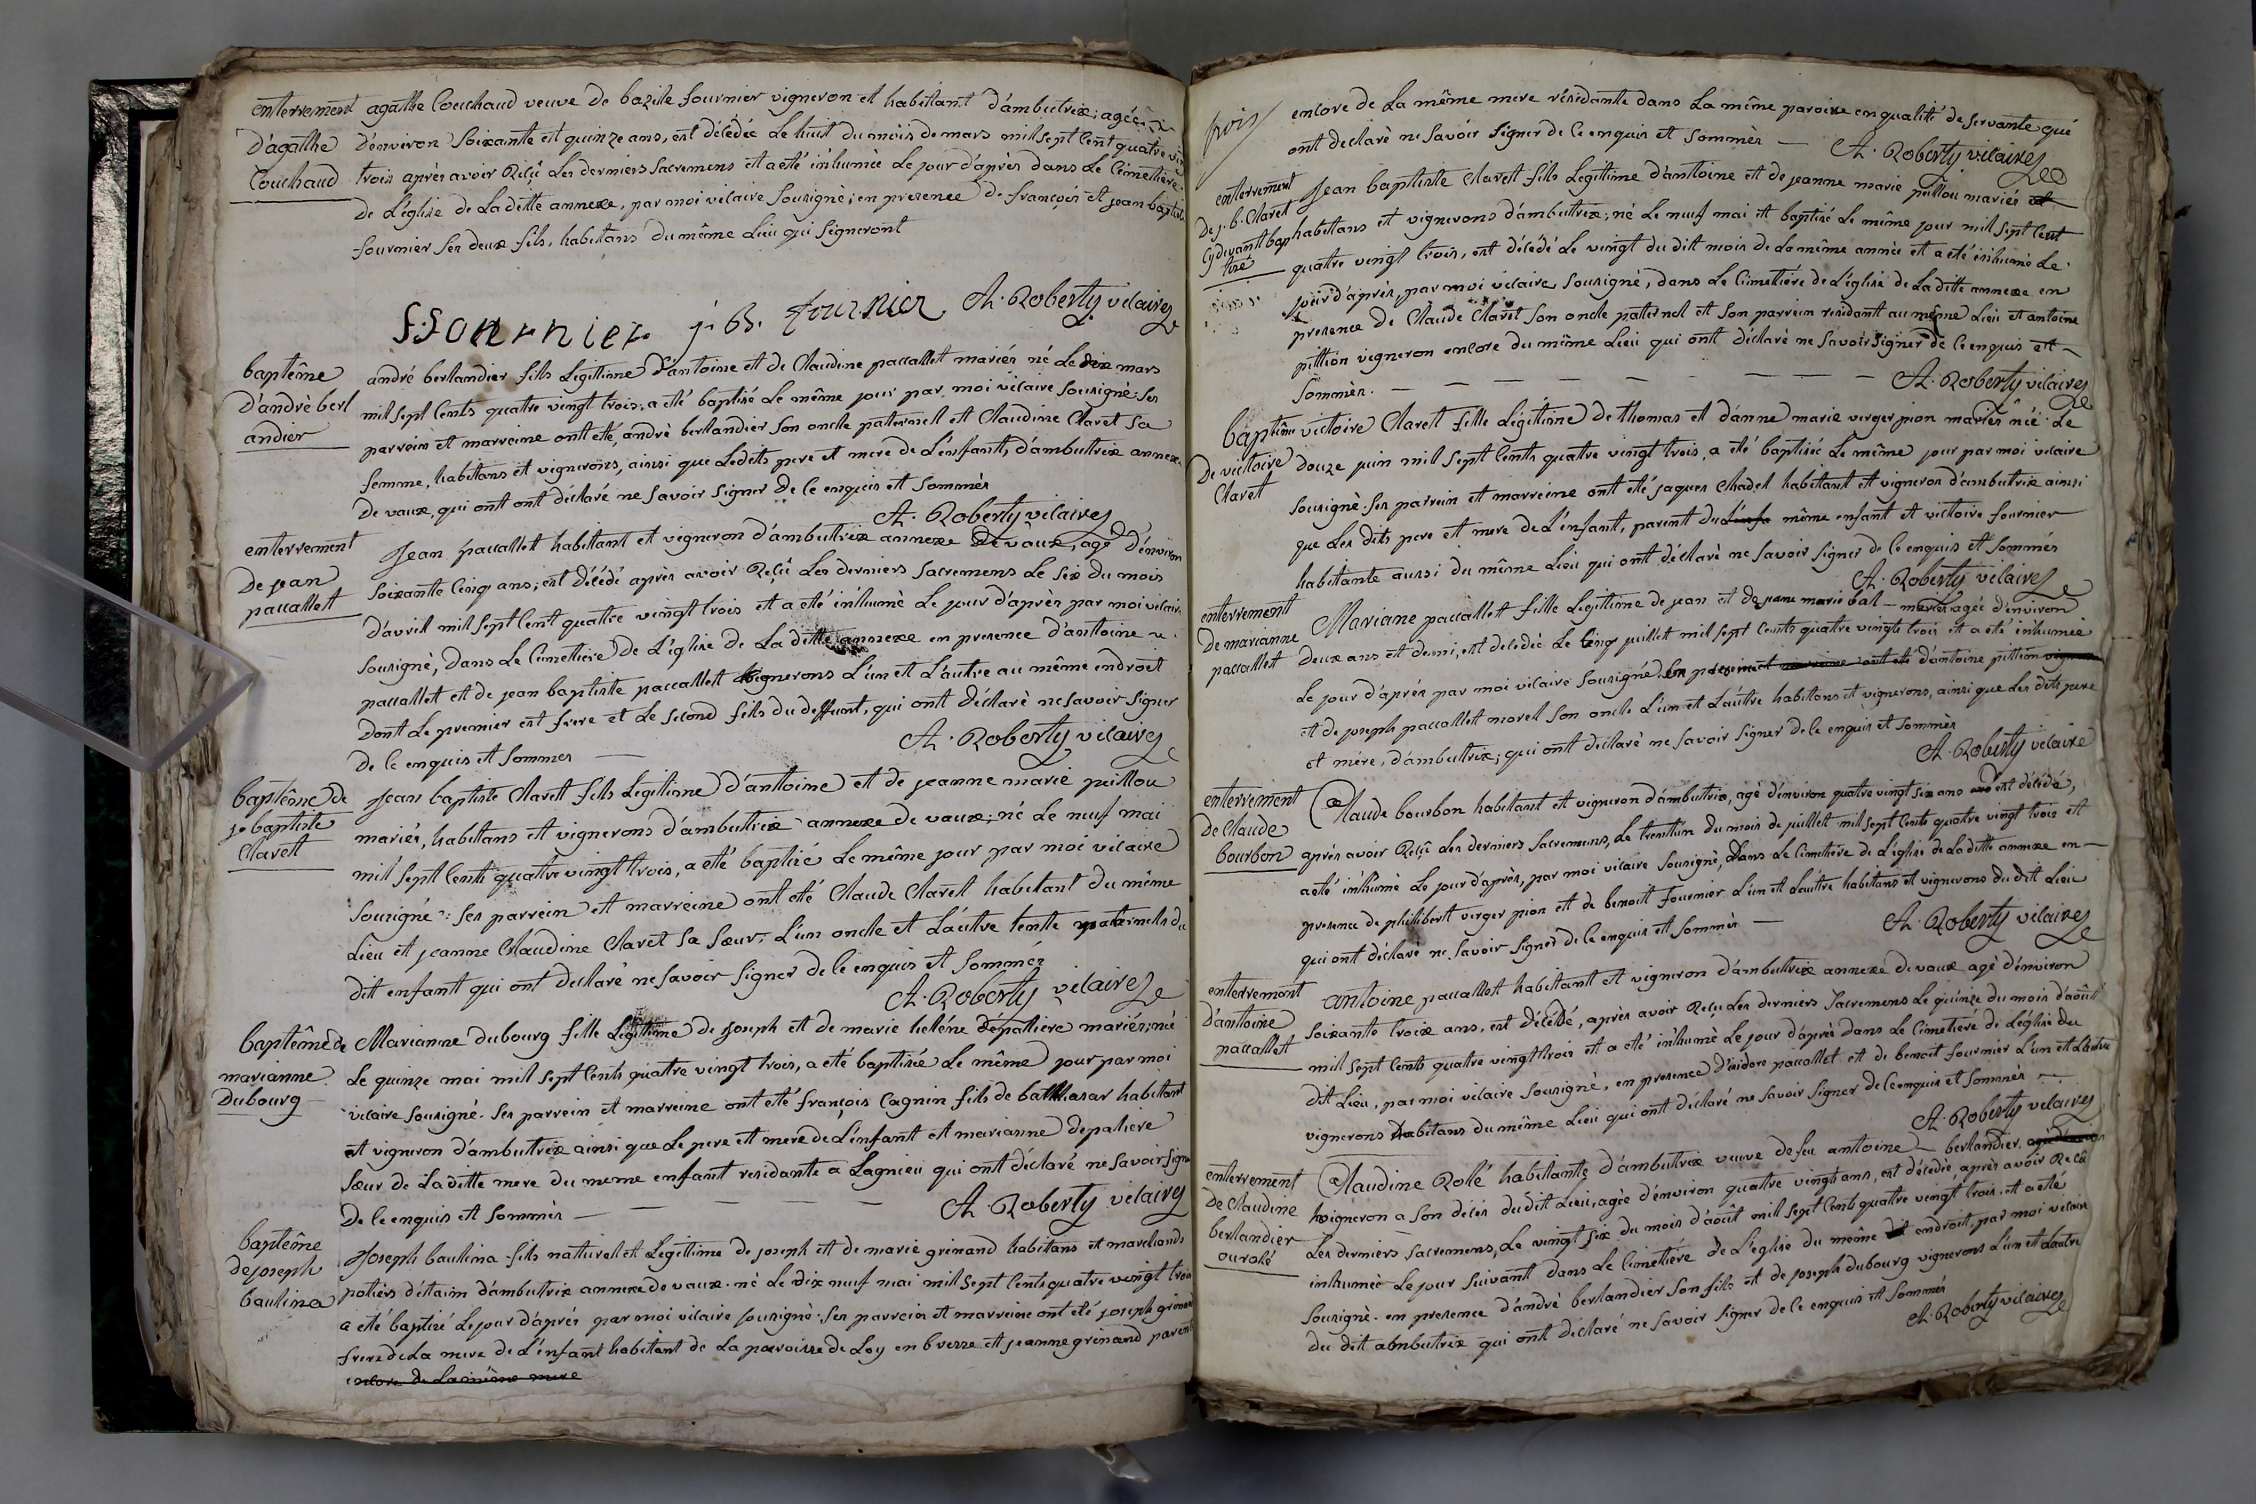 enterrement agathe Couchaud veuve de bazile fournier vigneron et habitant d'ambutrix; agée
d'agathe d'environ soixante et quinze ans, est décédée le huit du mois de mars mil sept cent quatre vin
Couchaud trois après avoir Reçû les derniers sacremens et a eté inhumée le jour d'après dans le Cimetiere
de L'église de La ditte annexe, par moi vicaire sousigné; en presence de françois et jean baptiste
fournier ses deux fils, habitans du même Lieu qui signeront
F. fournier j. B. fournier A. Roberty vicaire
baptême andré berlandier fils Légitime d'antoine et de Claudine paccallet mariés né le dix mars
d'andrè berl mil sept cents quatre vingt trois, a eté baptisé le même jour par moi vicaire sousigné: ses
andier parrein et marreine ont eté, andré berlandier son oncle paternel et Claudine Claret sa
femme, habitans et vignerons, ainsi que Lesdits pere et mere de L'enfant, d'ambutrix annexe
de vaux, qui ont ont déclaré ne savoir signer de ce enquis et sommés
A. Roberty vicaire
enterrement Jean paccallet habitant et vigneron d'ambutrix annexe de vaux, agé d'environ
de jean soixante cinq ans; est décédé après avoir Reçû Les derniers sacremens Le six du mois
paccallet d'avril mil sept cent quatre vingt trois et a eté inhumé Le jour d'après par moi vicair
sousigné, dans Le Cimetiere de L'église de La ditte annexe en presence d'antoine
paccallet et de jean baptiste paccallet vignerons L'un et L'autre au même endroit
dont Le premier est frere et Le second fils du deffunt, qui ont déclaré ne savoir signer
de ce enquis et sommés
A. Roberty vicaire
baptême de Jean baptiste Claret fils Légitime d'antoine et de jeanne marie peillou
j. baptiste mariés, habitans et vignerons d'ambutrix annexe de vaux; né Le neuf mai
Claret mil sept cents quatre vingt trois, a eté baptisé Le même jour par moi vicaire
sousigné: ses parrein et marreine ont eté Claude Claret habitant du même
Lieu et jeanne Claudine Claret sa sœur; L'un oncle et L'autre tente paternels du
dit enfant qui ont declaré ne savoir signer de ce enquis et sommés
A. Roberty vicaire
baptême de Marianne dubourg fille Légitime de joseph et de marie heléne dépatiere mariés; né
marianne Le quinze mai mil sept cents quatre vingt trois, a eté baptisée Le même jour par moi
Dubourg vicaire sousigné. ses parrein et marreine ont eté françois Cagnin fils de balthasar habitant
et vigneron d'ambutrix ainsi que Le pere et mere de L'enfant et marianne depatiere
sœur de La ditte mere du meme enfant residante a Lagnieu qui ont déclaré ne savoir signe
de ce enquis et sommés
A. Roberty vicaire
baptême Joseph baulina fils naturel et Légittime de joseph et de marie grinand habitans et marchands
de joseph potiers d'étaim d'ambutrix annexe de vaux. né Le dix neuf mai mil sept cents quatre vingt trois
baulina a eté baptisé Le jour d'après par moi vicaire sousigné. ses parrein et marreine ont eté joseph grinan
frere de La mere de L'enfant habitant de La parroisse de Loy en bresse et jeanne grinand parente
encore de La même mere
encore de La même mere résidante dans La même paroisse en qualité de servante qui
ont declaré ne savoir signer de ce enquis et sommés
A. Roberty vicaire
enterrement Jean baptiste Claret fils Légittime d'antoine et de jeanne marie peillou mariés et
de j. b. Claret habitans et vignerons d'ambutrix; né Le neuf mai et baptisé Le même jour mil sept cent
cy devant bap quatre vingt trois, est décédé Le vingt du dit mois de la même année et a eté inhumé Le
tisé jour d'après, par moi vicaire sousigné, dans Le Cimetiére de L'église de La ditte annexe en
presence de Claude Claret son oncle paternel et son parrein residant au même Lieu et antoine
pittion vigneron encore du même Lieu qui ont déclaré ne savoir signer de ce enquis et
sommés.
A. Roberty vicaire
baptême victoire Claret fille Légitime de thomas et d'anne marie verger pion mariés née Le
de victoire douze juin mil sept cents quatre vingt trois, a eté baptisée Le même jour par moi vicaire
Claret sousigné. ses parrein et marreine ont eté jaques Chadel habitant et vigneron d'ambutrix ainsi
que Les dits pere et mere de L'enfant, parent du L'enfa même enfant et victoire fournier
habitante aussi du même Lieu qui ont déclaré ne savoir signer de ce enquis et sommés
A. Roberty vicaire
enterrement Mariane paccallet fille Légitime de jean et de jeane marie bal mariés agée d'environ
de marianne deux ans et demi, est decedée Le cinq juillet mil sept cents quatre vingts trois et a eté inhumée
paccallet Le jour d'après par moi vicaire sousigné. d'antoine pittion
et de joseph paccallet morel son oncle L'un et L'autre habitans et vignerons, ainsi que Les dits pere
et mére, d'ambutrix; qui ont déclaré ne savoir signer de ce enquis et sommés
A. Roberty vicaire
enterrement Claude bourbon habitant et vigneron d'ambutrix, agé d'environ quatre vingt six ans est décédé,
de Claude après avoir Reçû Les derniers sacremens, Le trentun du mois de juillet mil sept cents quatre vingt trois et
bourbon a eté inhumé Le jour d'après, par moi vicaire sousigné, dans Le Cimetiére de L'église de La ditte annexe en
presence de philibert verger pion et de benoit fournier L'un et L'autre habitans et vignerons du dit Lieu
qui ont déclaré ne savoir signer de ce enquis et sommés
A. Roberty vicaire
enterrement antoine paccallet habitant et vigneron d'ambutrix annexe de vaux agé d'environ
d'antoine soixante trois ans, est décédé, après avoir Reçu Les derniers sacremens Le quinze du mois d'août
paccallet mil sept cents quatre vingt trois et a eté inhumé Le jour d'après dans Le Cimetiére de L'église du
dit Lieu, par moi vicaire sousigné, en presence d'isidore paccallet et de benoit fournier L'un et L'autre
vignerons habitans du même Lieu qui ont déclaré ne savoir signer de ce enquis et sommés
A. Roberty vicaire
enterrement Claudine Rolé habitante d'ambutrix veuve de feu antoine berlandier,
de Claudine vigneron a son décés du dit Lieu, agée d'environ quatre vingt ans, est décédée après avoir Reçu
berlandier Les derniers sacremens, Le vingt six du mois d'août mil sept cents quatre vingt trois. et a eté
ou rolé inhumée Le jour suivant dans Le Cimetiére de L'eglise du même endroit, par moi vicaire
sousigné. en presence d'andré berlandier son fils et de joseph dubourg vignerons L'un et L'autre
du dit ambutrix qui ont déclaré ne savoir signer de ce enquis et sommés
A. Roberty vicaire